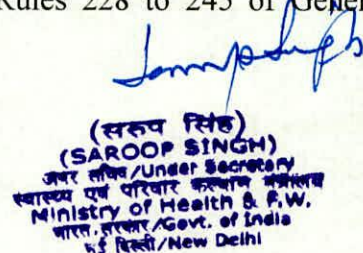 Rules 228 to 245 of Gener
(सरुप सिंह)
(SAROOP SINGH)
अवर सचिव/Under Secretary
स्वास्थ्य एवं परिवार कल्याण मंत्रालय
Ministry of Health & F.W.
भारत सरकार/Govt. of India
नई दिल्ली/New Delhi